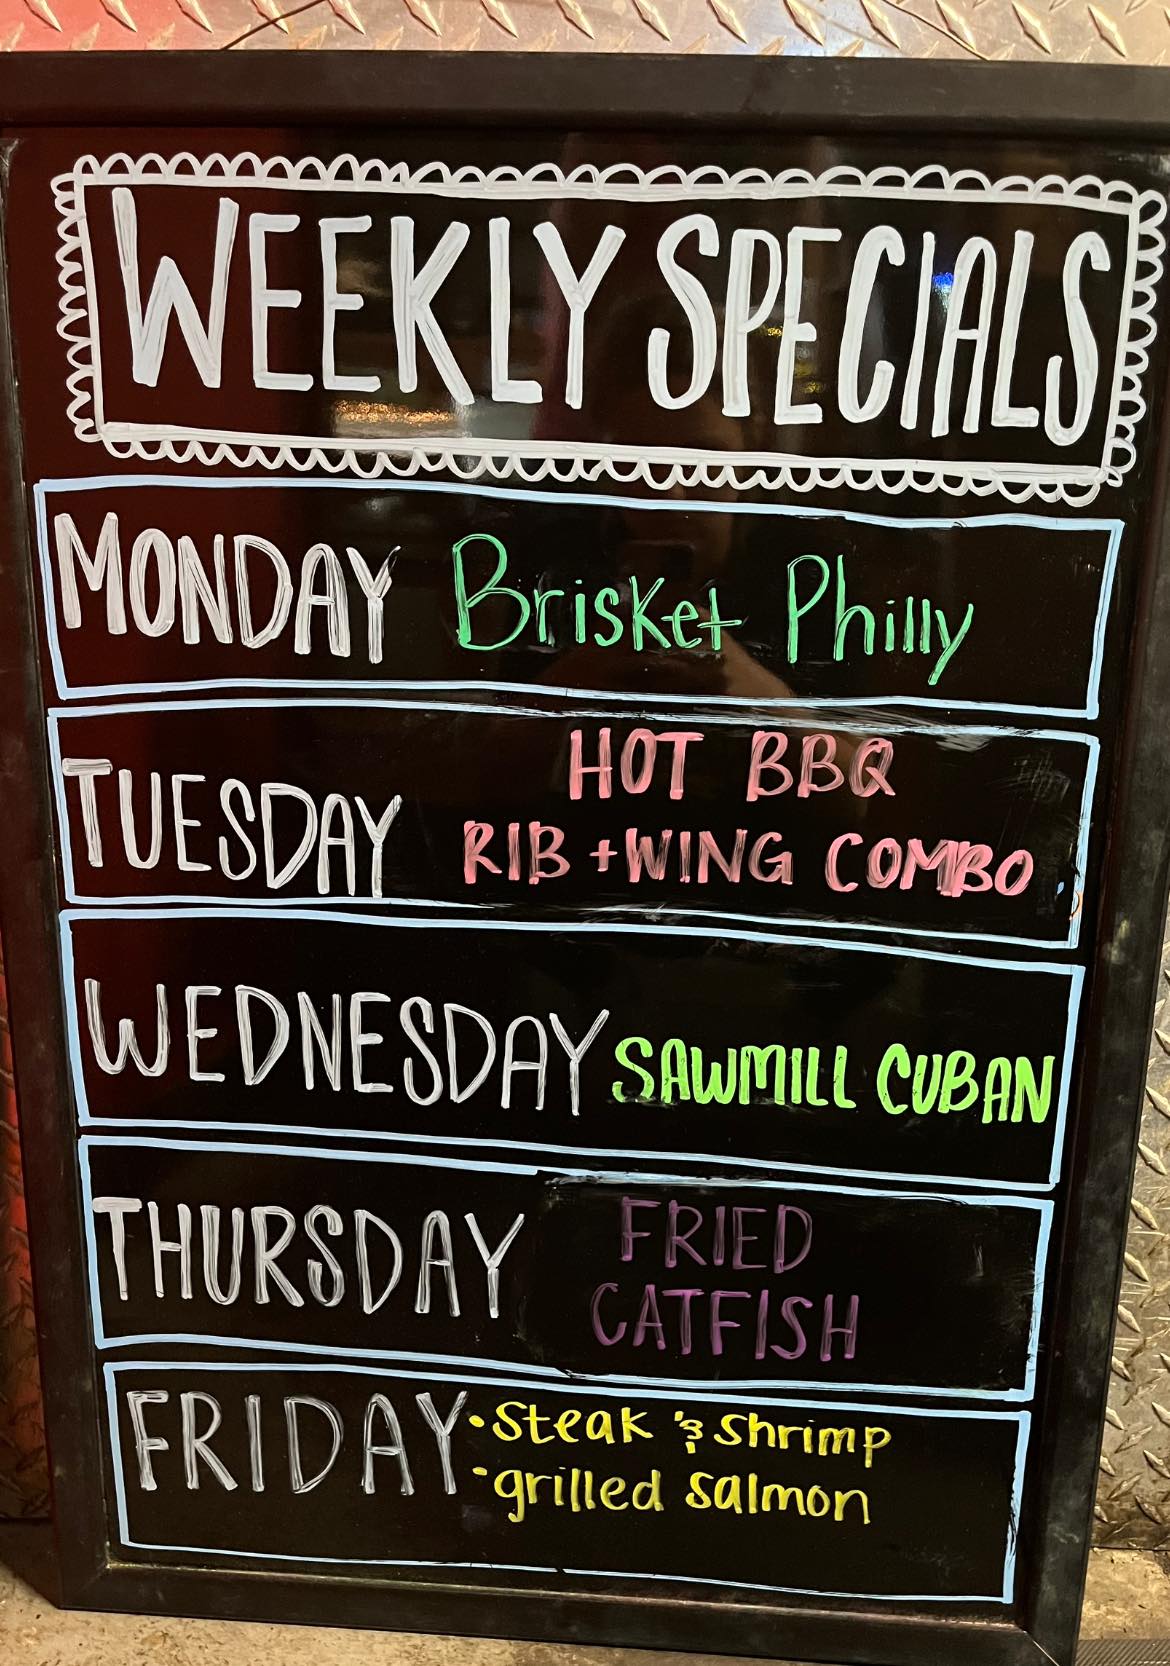 WEEKLY SPECIALS
MONDAY Brisket Philly
TUESDAY HOT BBQ
RIB + WING COMBO
WEDNESDAY SAWMILL CUBAN
THURSDAY FRIED
CATFISH
FRIDAY • Steak & Shrimp
• grilled salmon